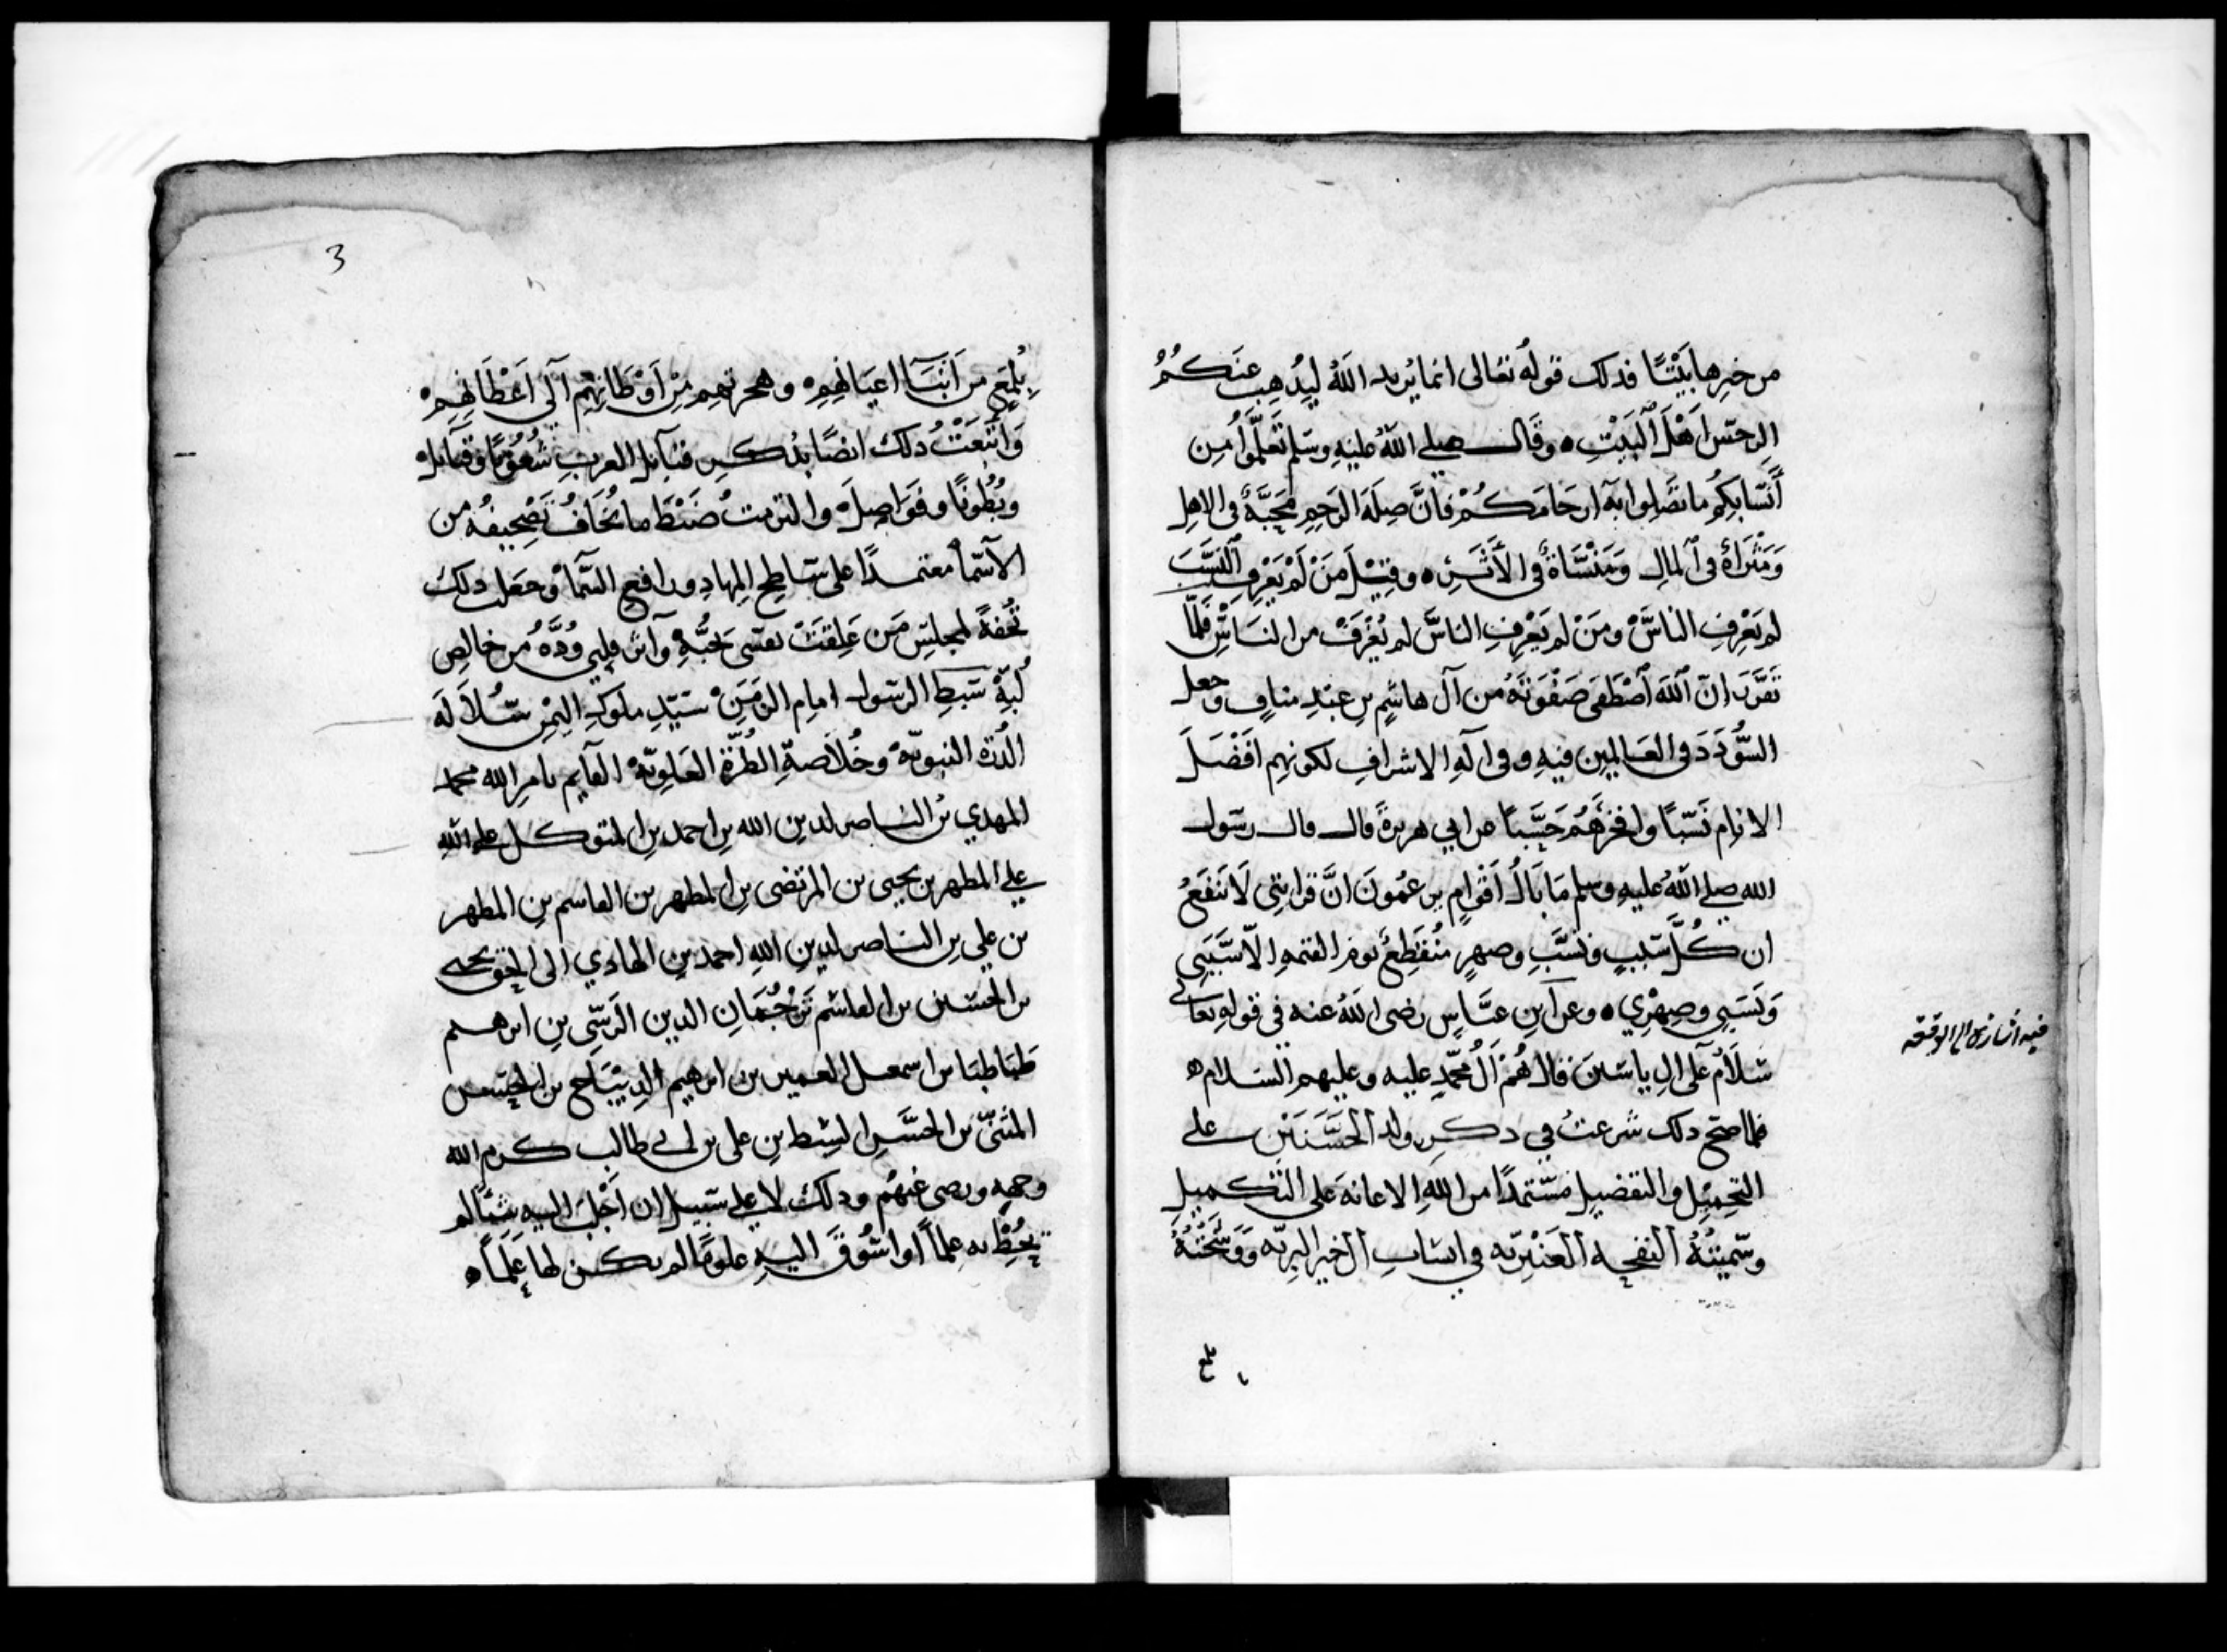 من خيرها بيتًا فذلك قوله تعالى انما يريد الله ليذهب عنكم
الرجس اهل البيت ۝ وقال صلى الله عليه وسلم تعلموا من
أنسابكم ما تصلوا به ارحامكم فان صلة الرحم محبة في الاهل
ومثراة في المال ومنسأة في الأثر ۝ وقيل من لم يعرف النسب
لم يعرف الناس ومن لم يعرف الناس لم يعرف من الناس فلما
تقرر ان الله اصطفى صفوته من آل هاشم بن عبد مناف وجعل
السؤدد في العالمين فيه وفي اله الاشراف لكونهم افضل
الانام نسبًا وافخرهم حسبًا عن ابي هريرة قال قال رسول
الله صلى الله عليه وسلم ما بال اقوام يزعمون ان قرابتي لا تنفع
ان كل سبب ونسب وصهر منقطع يوم القيمة الا سببي
ونسبي وصهري ۝ وعن ابن عباس رضي الله عنه في قوله تعالى
سلام على ال ياسين قال هم آل محمد عليه وعليهم السلام ۝
فلما صح ذلك شرعت في ذكر ولد الحسنين على
التجميل والتفضيل مستمدًا من الله الاعانة على التكميل
وسميته النفحة العنبرية في انساب آل خير البرية ووشحته
فيه اشارة الى
بلغ
3
بلمع من أنباء اعيانهم وهجرتهم من أوطانهم الى اعطانهم
واتبعت ذلك ايضًا بذكر قبائل العرب شعوبًا وقبائل
وبطونًا وفواصل والتزمت ضبط ما يخاف تصحيفه من
الاسماء معتمدًا على ساطح المهاد ورافع السماء وجعلت ذلك
تحفة لمجلس من علقت نفسي بحبه وآثر قلبي وده من خالص
لبه سبط الرسول امام الزمن سيد ملوك اليمن سلالة
الدرة النبوية وخلاصة الطرة العلوية القايم بامر الله محمد
المهدي بن الناصر لدين الله بن احمد بن المتوكل على الله
على المطهر بن يحيى بن المرتضى بن المطهر بن القاسم بن المطهر
بن علي بن الناصر لدين الله احمد بن الهادي الى الحق يحيى
بن الحسين بن القاسم ترجمان الدين الرسي بن ابرهيم
طباطبا بن اسمعيل الغمر بن ابرهيم الديباج بن الحسن
المثنى بن الحسن السبط بن علي بن ابي طالب كرم الله
وجهه ورضي عنهم وذلك لا على سبيل ان اجلب اليه شيئًا لم
يحط به علمًا او اسوق اليه علومًا لم يكن لها علمًا ۝